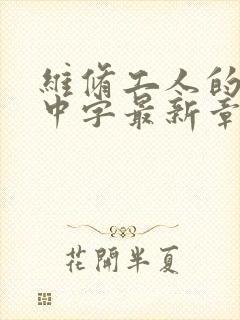 維脩工人的
中字最新章
花開半夏